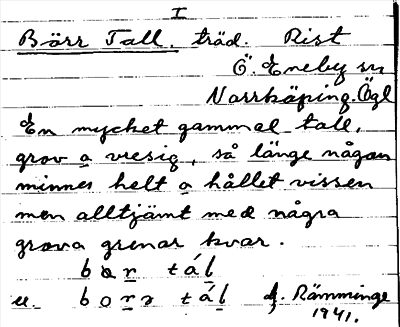 I
Börr Tall. träd. Rist
Ö. Eneby sn
Norrköping. Ögl
En mycket gammal tall,
grov a vresig, så länge någon
minnes helt a hållet vissen
men alltjämt med några
grova grenar kvar.
bar tál
el. borə tál Rämminge
1941.